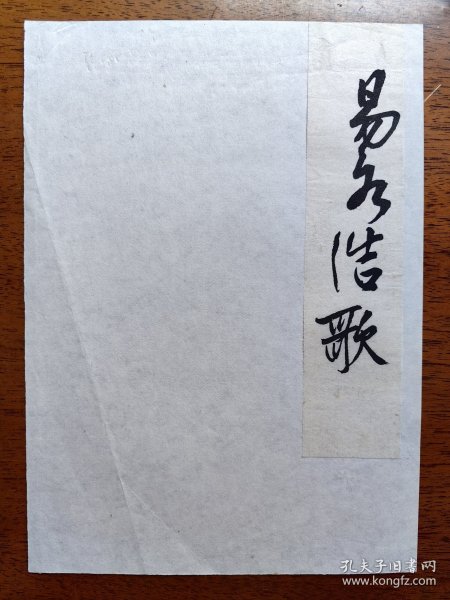 易水浩歌
孔夫子旧书网
www.kongfz.com